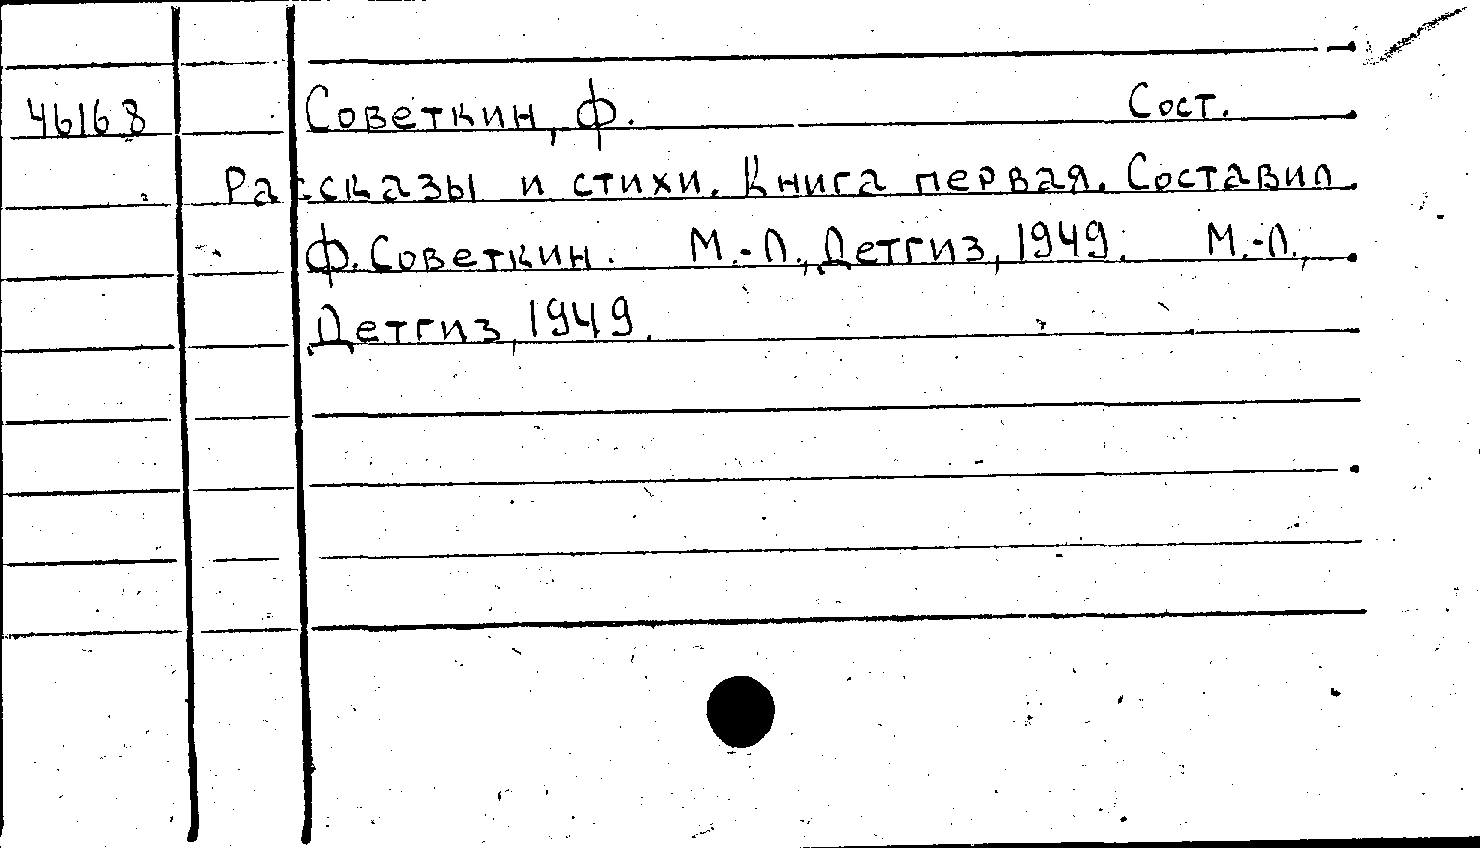 46168 Советкин, Ф. Сост.
Рассказы и стихи. Книга первая. Составил
Ф. Советкин. М.-Л., Детгиз, 1949. М.-Л.,
Детгиз, 1949.